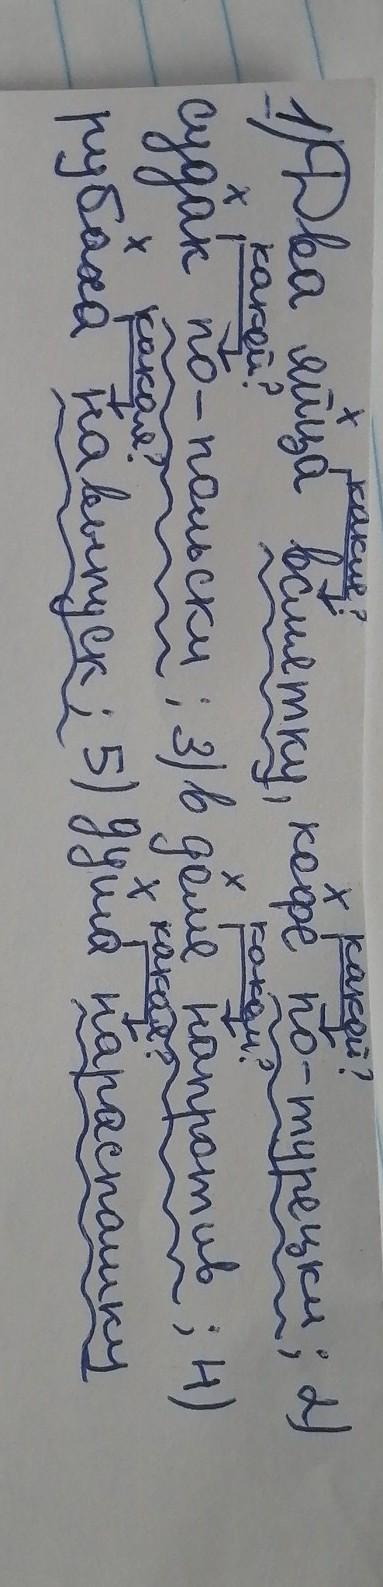 какие? какой?
1) Два яйца всмятку, кофе по-турецки; 2)
какой? каком?
судак по-польски; 3) в доме напротив; 4)
какая? какая?
рубаха навыпуск; 5) душа нараспашку